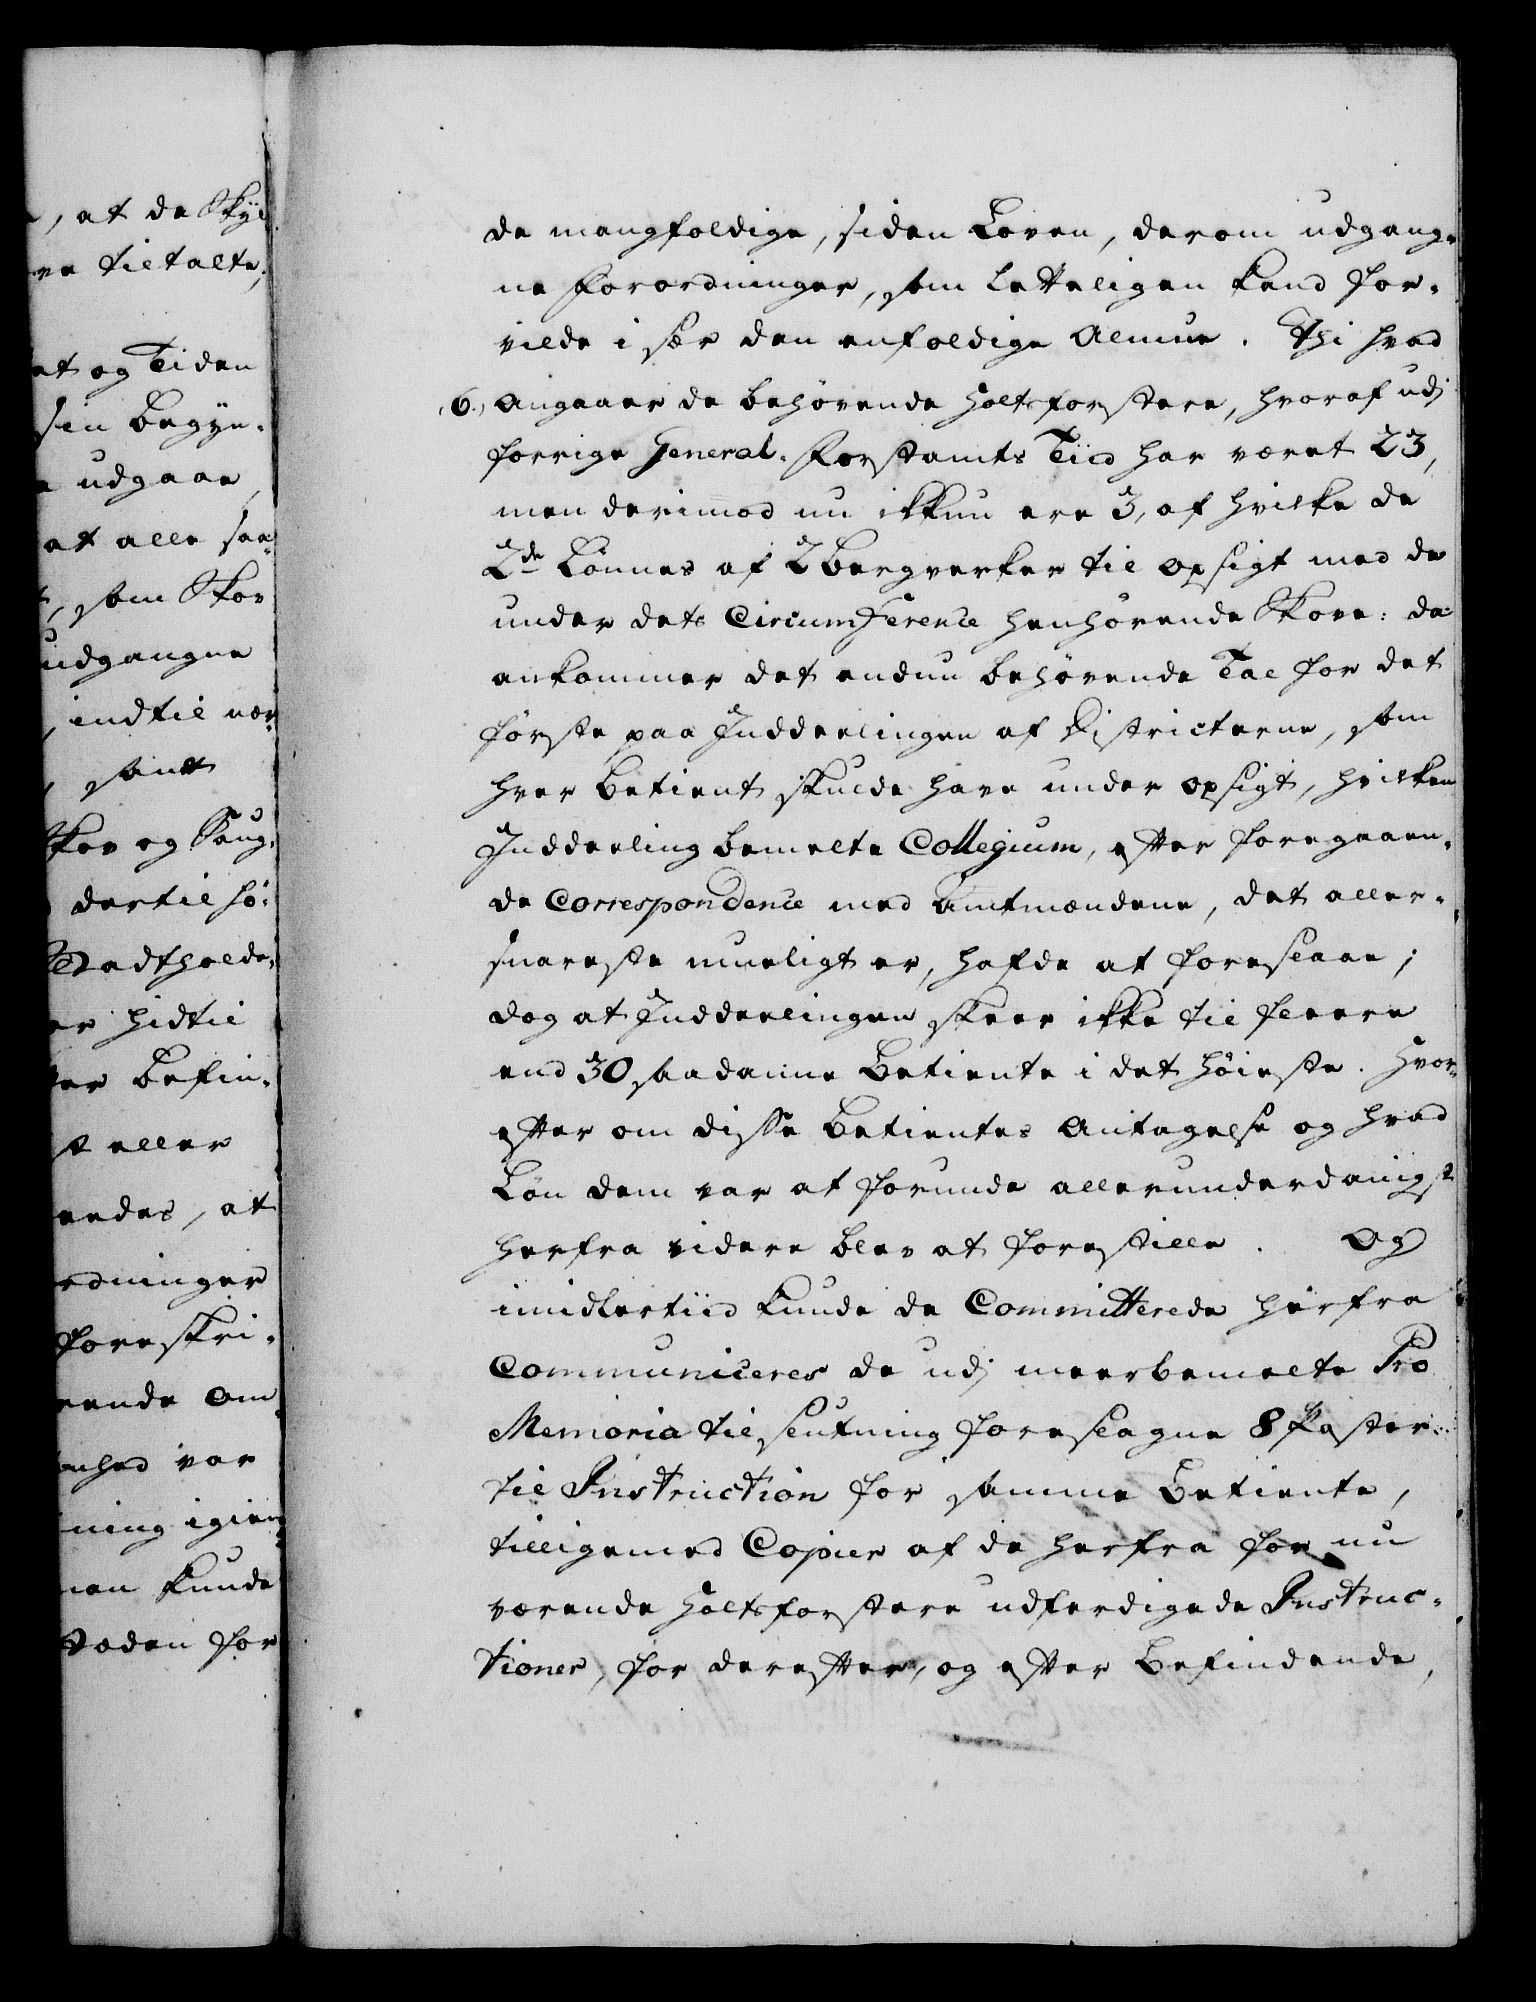 , at de Skyl
ve tiltalte;
et og Tiden
sin begyn-
e udgaae,
at alle saa-
t, som Skov
udgangne
, indtil nær-
, samt
Skov og Saug-
dertil hö-
Stadtholde-
er hidtil
ter befin-
st eller
endes, at
rdninger
foreskri-
ende Om-
enhed var
ning igien
nen kunde
Stæden for
de mangfoldige, siden Loven, derom udgang-
ne Forordninger, som letteligen kand for-
vilde i sær den enfoldige Almue. Thi hvad
(6.) angaaer de behövende Holtzforstere, hvoraf udj
forrige General-Forstamts Tiid har været 23,
men derimod nu ikkun ere 3, af hvilke de
2de Lönnes af 2 Bergverker til Opsigt med de
under dets Circumference henhörende Skove: da
ankommer det endnu behövende Tal for det
förste paa Inddeelingen af Districterne, som
hver Betient skulde have under Opsigt, hvilken
Inddeeling bemelte Collegium, efter foregaaen-
de Correspondence med Amtmændene, det aller-
snareste mueligt er, hafde at foreslaae;
dog at Inddeelingen skeer ikke til fleere
end 30 saadanne Betiente i det höieste. Hvor-
efter om disse Betientes Antagelse og hvad
Lön dem var at forunde allerunderdanigst
herfra videre blev at forestille. Og
imidlertiid kunde de Committerede herfra
Communiceres de udj meerbemelte Pro
Memoria til slutning foreslagne 8 Poster
til Instruction for samme Betiente,
tilligemed Copier af de herfra for nu
værende Holtzforstere udferdigede Instruc-
tioner, for derefter, og efter Befindende,